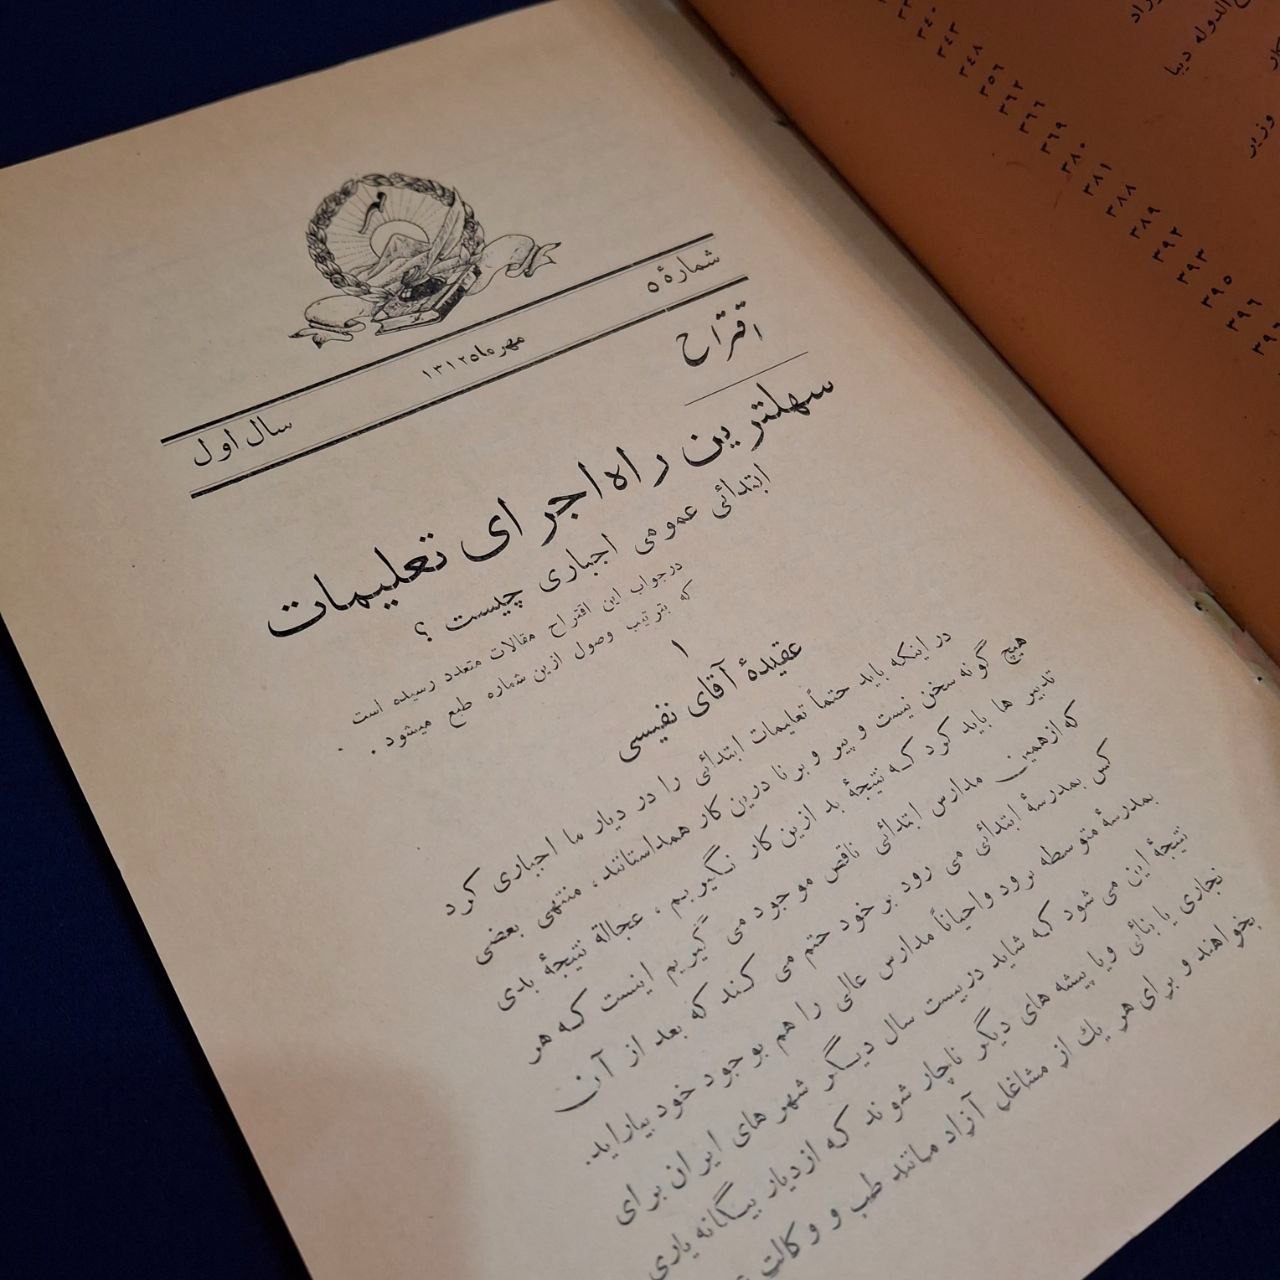 شمارهٔ ۵
مهرماه ۱۳۱۲
سال اول
اقتراح
سهلترین راه اجرای تعلیمات
ابتدائی عمومی اجباری چیست ؟
در جواب این اقتراح مقالات متعدد رسیده است
که بترتیب وصول ازین شماره طبع میشود .
۱
عقیدهٔ آقای نفیسی
در اینکه باید حتماً تعلیمات ابتدائی را در دیار ما اجباری کرد
هیچ گونه سخن نیست و پیر و برنا درین کار همداستانند، منتهی بعضی
تدبیر ها باید کرد که نتیجهٔ بد ازین کار نگیریم ، عجالة نتیجهٔ بدی
که ازهمین مدارس ابتدائی ناقص موجود می گیریم اینست که هر
کس بمدرسهٔ ابتدائی می رود برخود حتم می کند که بعد از آن
بمدرسهٔ متوسطه برود واحیاناً مدارس عالی را هم بوجود خود بیاراید.
نتیجهٔ این می شود که شاید دربیست سال دیگر شهر های ایران برای
نجاری یا بنائی ویا پیشه های دیگر ناچار شوند که ازدیار بیگانه یاری
بخواهند و برای هر یك از مشاغل آزاد مانند طب و وکالت
الدوله دیبا
وزیر
۳۴۰
۳۴۳
۳۴۸
۳۵۶
۳۶۲
۳۶۶
۳۶۹
۳۸۰
۳۸۱
۳۸۸
۳۸۹
۳۹۲
۳۹۳
۳۹۵
۳۹۶